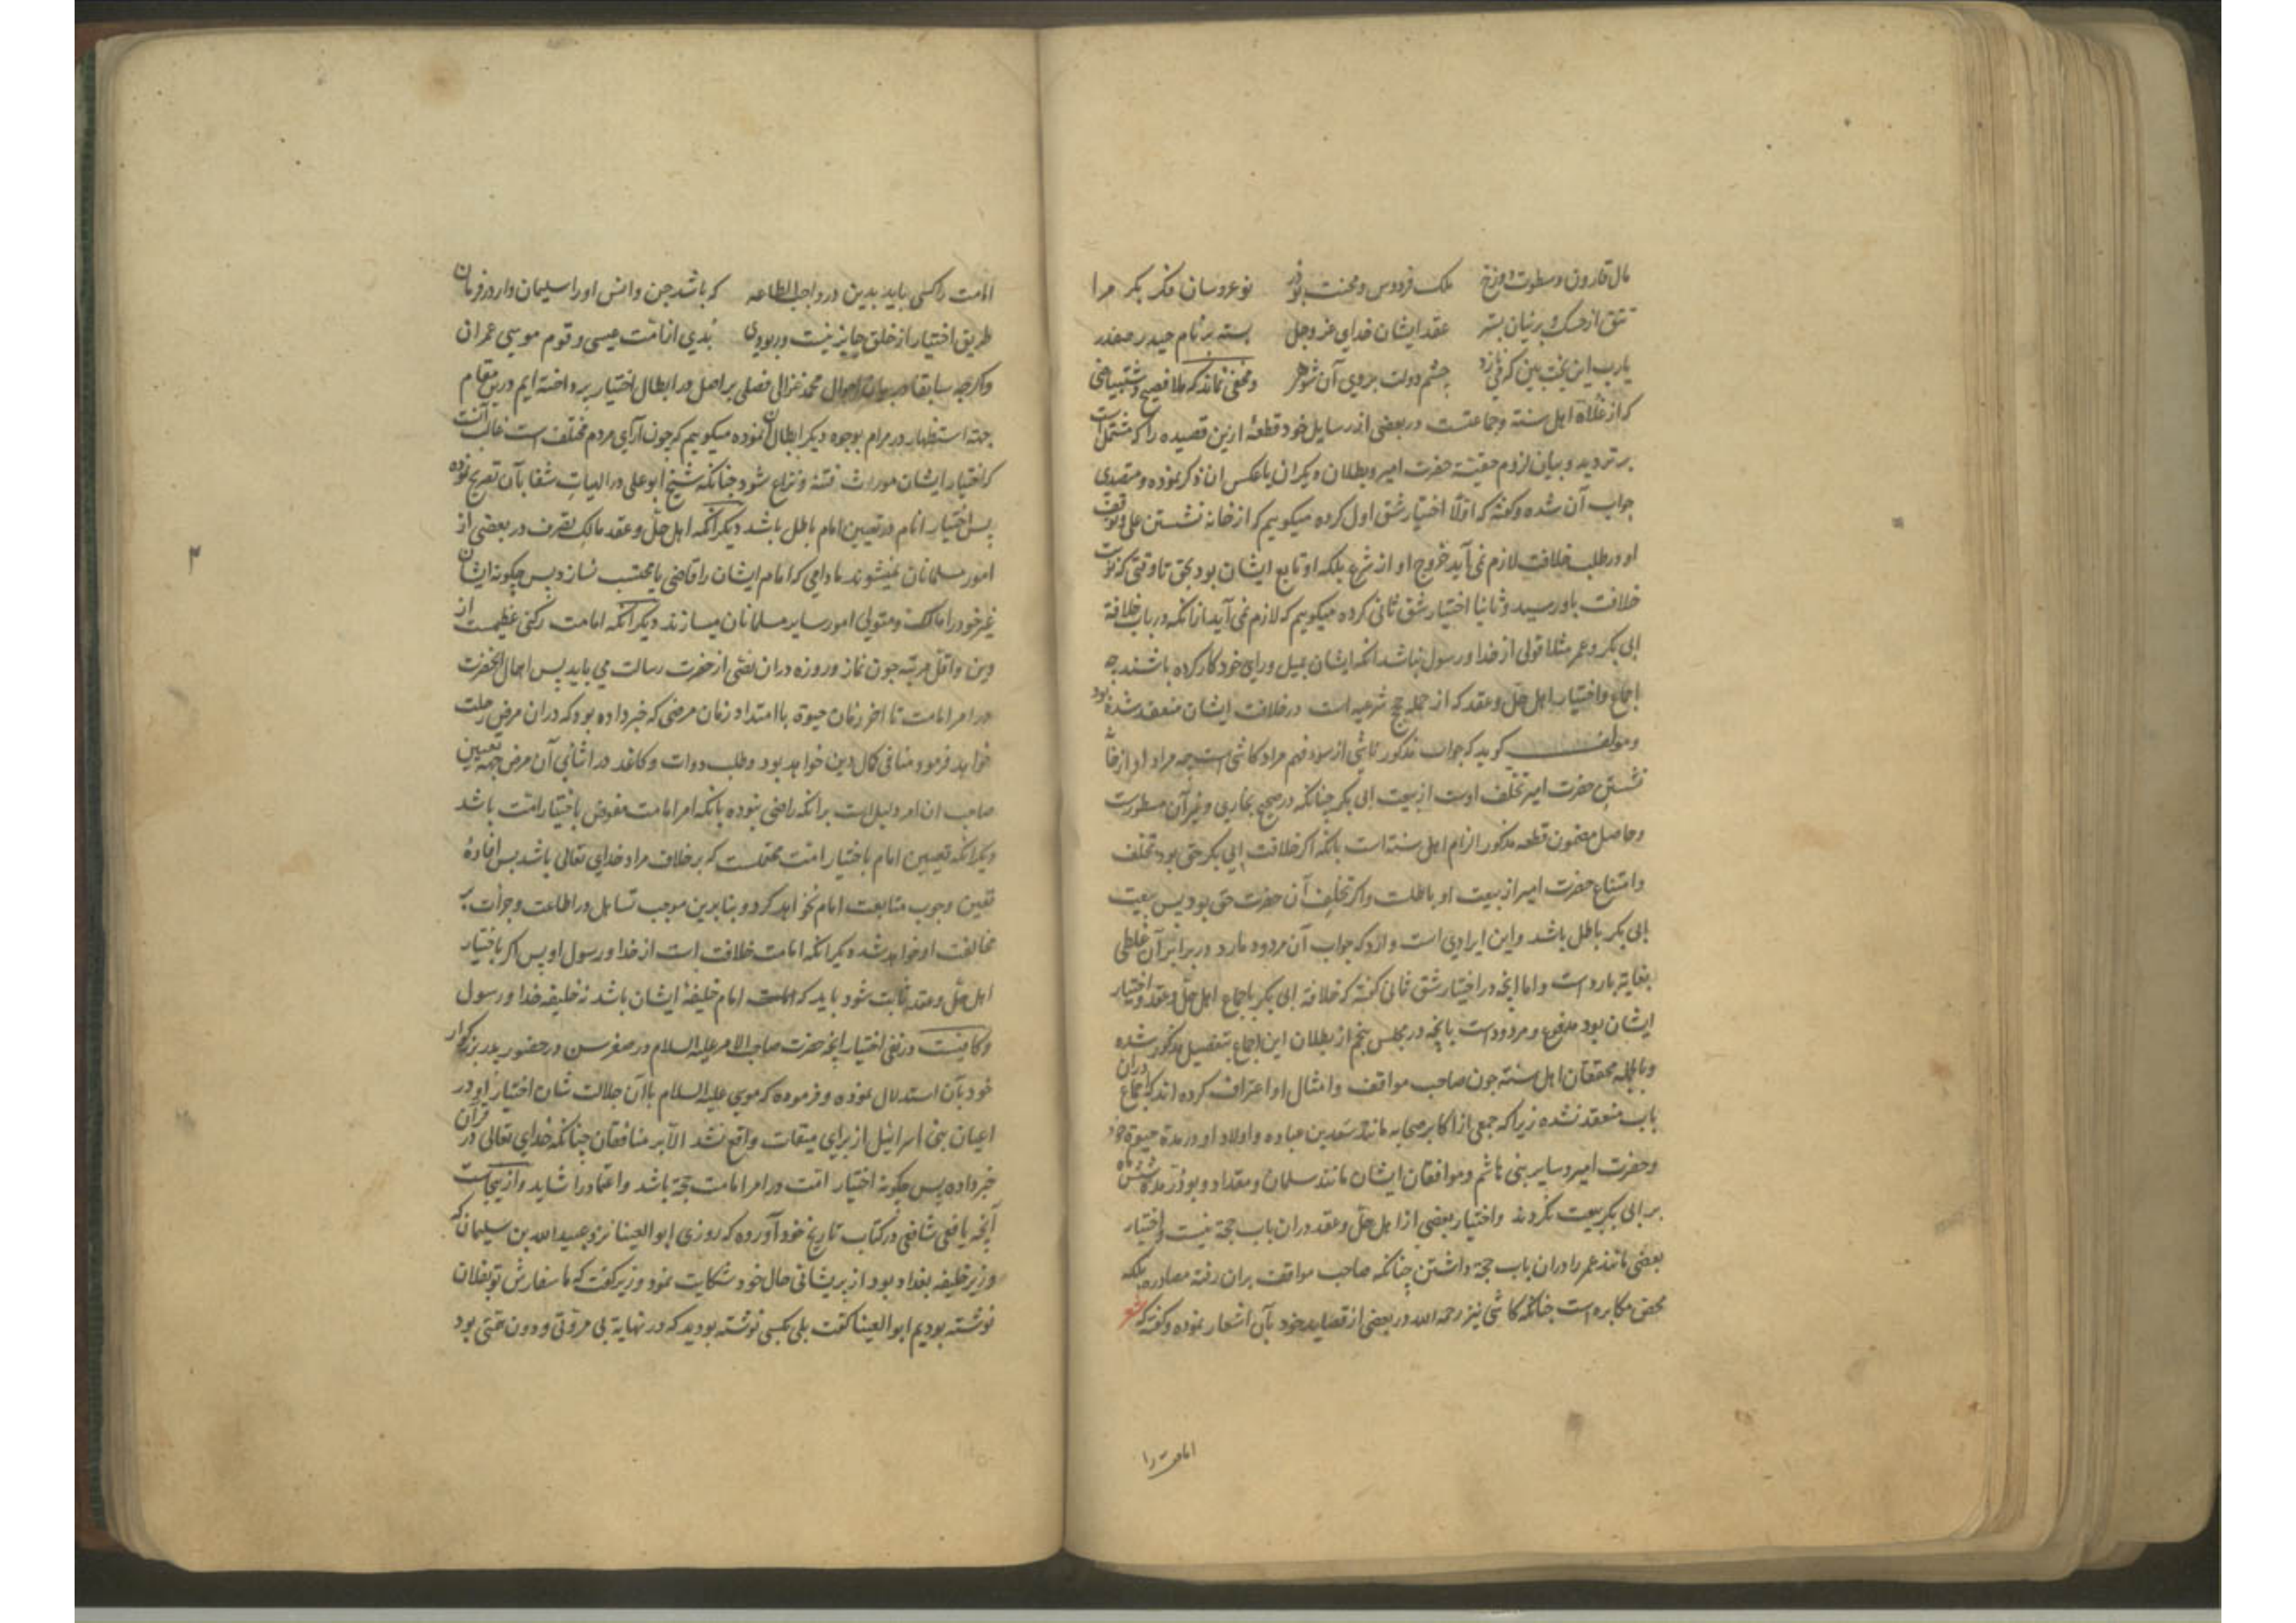 مال قارون و سطوت دوزخ ملک فردوس و محنت نو عروسان فکر بکر مرا
تتق از خسک و پرنیان بسته عقد ایشان خدای عز و جل بسته بر نام حیدر صفدر
یارب این بخت بین که چشم دولت بروی آن شوهر و مخفی نماند که ملا فصیح
که از غلاة اهل سنة و جماعتست در بعضی از رسایل خود قطعهٔ ازین قصیده را که مشتمل است
بر تردید و بیان لزوم حقیة حضرت امیر و بطلان دیگران یا عکس ان ذکر نموده و متصدی
جواب آن شده و گفته که اولا اختیار شق اول کرده میکوییم که از خانه نشستن علی و توقف
او در طلب خلافت لازم نمی آید خروج او از شرع بلکه او تابع ایشان بود بحق تا وقتی که نوبت
خلافت باو رسید و ثانیا اختیار شق ثانی کرده میکوییم که لازم نمی آید ازانکه در باب خلافة
ابی بکر و عمر مثلا قولی از خدا و رسول نباشد انکه ایشان بمیل و رای خود کار کرده باشند چه
اجماع و اختیار اهل حل و عقد که از جمله حجج شرعیه است در خلافت ایشان منعقد شده بود
و مولف کوید که جواب مذکور ناشی از سوء فهم مراد کاشی است چه مراد او از خانه
نشستن حضرت امیر تخلف اوست از بیعت ابی بکر چنانکه در صحیح بخاری و غیر آن مسطورست
و حاصل مضمون قطعه مذکور الزام اهل سنة است بانکه اکر خلافت ابی بکر حق بود تخلف
و امتناع حضرت امیر از بیعت او باطلست و اکر تخلف آن حضرت حق بود پس بیعت
ابی بکر باطل باشد و این ایرادی است وارد که جواب آن مردود مارد در برابر آن غلطی
بغایة بارد است و اما انچه در اختیار شق ثانی کفته که خلافة ابی بکر باجماع اهل حل و عقد و اختیار
ایشان بود مدفوع و مردود است بانچه در مجلس پنجم از بطلان این اجماع بتفصیل مذکور شده
و بالجمله محققان اهل سنته چون صاحب مواقف و امثال او اعتراف کرده اند که اجماع دران
باب منعقد نشده زیرا که جمعی از اکابر صحابه مانند سعد بن عباده و اولاد او در مدة حیوة خود
و حضرت امیر و سایر بنی هاشم و موافقان ایشان مانند سلمان و مقداد و بوذر مدة شش ماه
بر ابی بکر بیعت نکردند و اختیار بعضی از اهل حل و عقد دران باب حجة نیست و اختیار
بعضی مانند عمر را دران باب حجة داشتن چنانکه صاحب مواقف بران رفته مصادره بلکه
محض مکابره است چنانکه کاشی نیز رحمه الله در بعضی از قصاید خود بآن اشعار نموده و کفته که شعر
امامت را
امامت را کسی باید بدین در واجب الطاعه که باشد جن و انس او را سلیمان وار در فرمان
طریق اختیار از خلق جایز نیست ور بودی بدی از امت عیسی و قوم موسی عمران
و اکرچه سابقا در بیان احوال محمد غزالی فصلی بر اصل در ابطال اختیار پرداخته ایم درین مقام
جهة استظهار در مرام بوجوه دیکر ابطال ان نموده میکوییم که چون آرای مردم مختلف است غالب آنست
که اختیار ایشان مورث فتنه و نزاع شود چنانکه شیخ ابو علی در الهیات شفا بآن تصریح نموده
پس اختیار انام در تعیین امام باطل باشد دیکر آنکه اهل حل و عقد مالک تصرف در بعضی از
امور مسلمانان نمیشوند مادامی که امام ایشان را قاضی یا محتسب نسازد پس چکونه ایشان
غیر خود را مالک و متولی امور سایر مسلمانان میسازند دیکر آنکه امامت رکنی عظیمست از
دین و اقل مرتبه چون نماز و روزه دران نصی از حضرت رسالت می باید پس اهمال آنحضرت
در امر امامت تا اخر زمان حیوة با امتداد زمان مرضی که خبر داده بود که دران مرض رحلت
خواهد فرمود منافی کمال دین خواهد بود و طلب دوات و کاغد در اثنای آن مرض جهة تعیین
صاحب ان امر دلیل است برانکه راضی نبوده بانکه امر امامت مفوض باختیار امت باشد
دیکر آنکه تعیین امام باختیار امت محتملست که بر خلاف مراد خدای تعالی باشد پس افادهٔ
یقین وجوب متابعت امام نخواهد کرد و بنا برین موجب تساهل در اطاعت و جرات بر
مخالفت او خواهد شد دیکر انکه امامت خلافت است از خدا و رسول او پس اکر باختیار
اهل حل و عقد ثابت شود باید که امام خلیفهٔ ایشان باشد نه خلیفه خدا و رسول
و کافیست در نفی اختیار انچه حضرت صاحب الامر علیه السلام در صغر سن و در حضور پدر بزرکوار
خود بآن استدلال نموده و فرموده که موسی علیه السلام با آن جلالت شان اختیار او در
اعیان بنی اسرائیل از برای میقات واقع نشد الا بر منافقان چنانکه خدای تعالی در قرآن
خبر داده پس چکونه اختیار امت در امر امامت حجة باشد و اعتماد را شاید و ازینجاست
آنچه یافعی شافعی در کتاب تاریخ خود آورده که روزی ابو العینا نزد عبید الله بن سلیمان که
وزیر خلیفه بغداد بود از پریشانی حال خود شکایت نمود وزیر کفت که ما سفارش تو بفلان
نوشته بودیم ابو العینا کفت بلی بکسی نوشته بودید که در نهایة بی مروتی و دون همتی بود